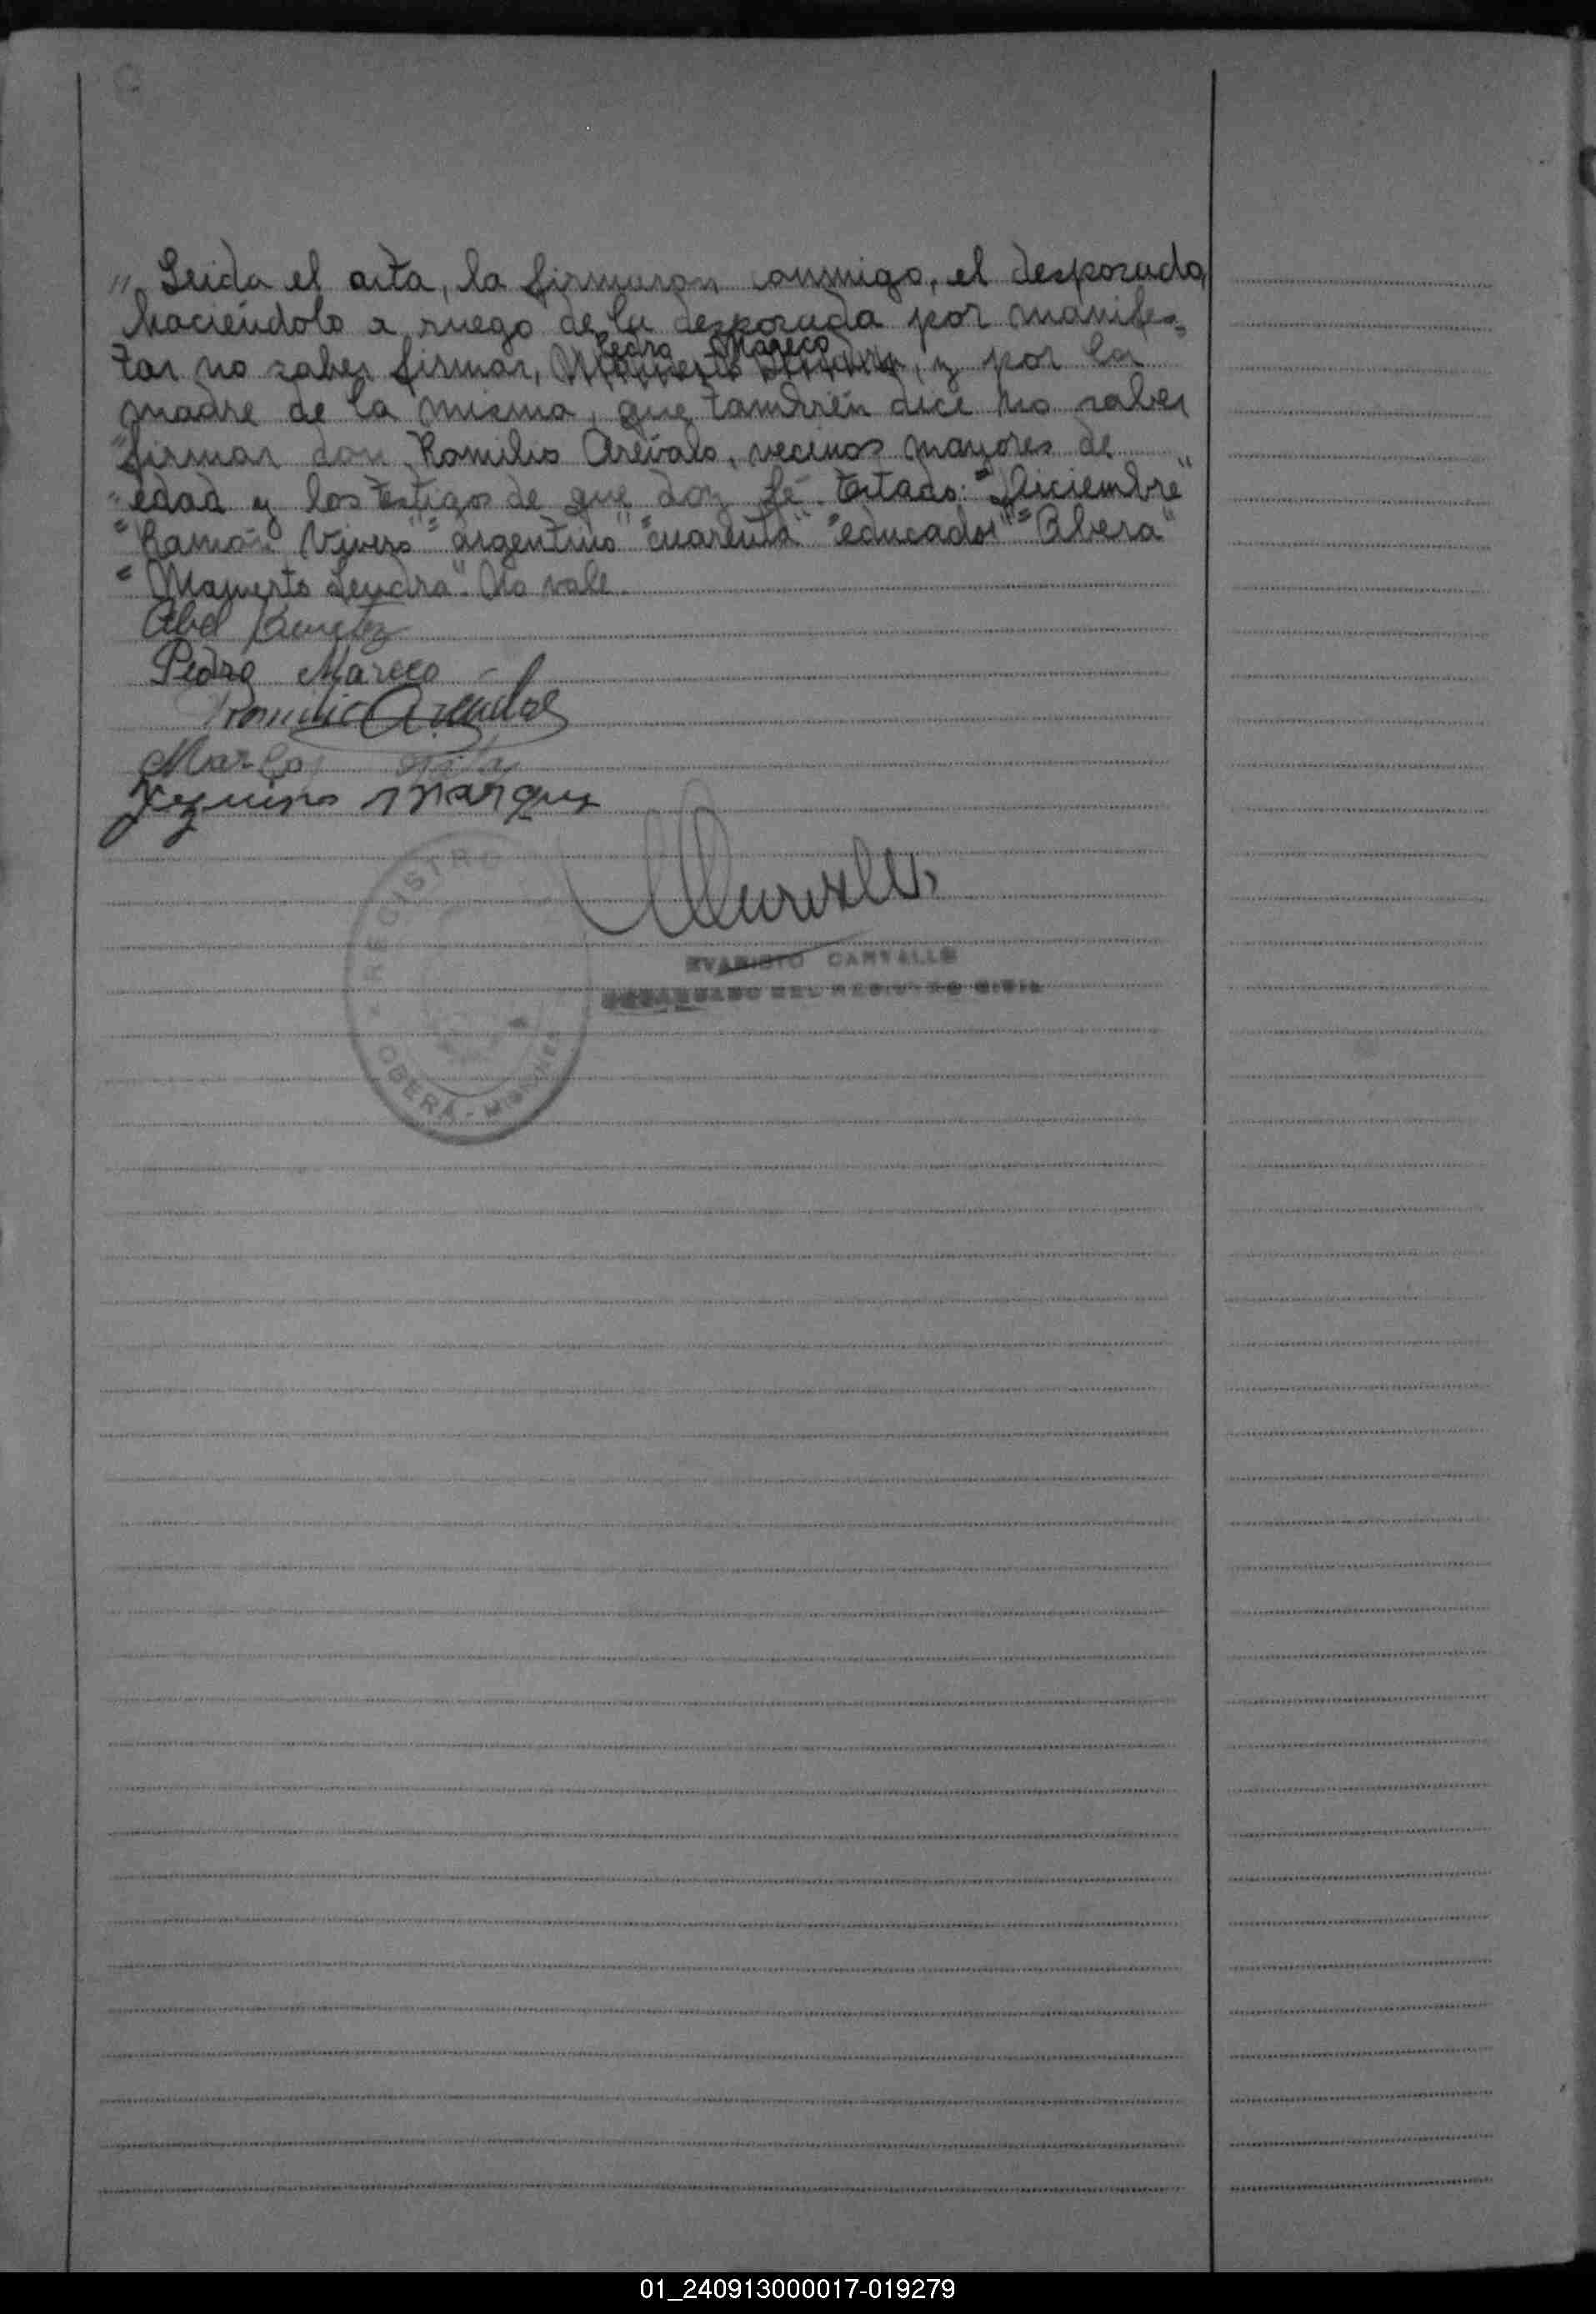 " Leida el acta, la firmaron conmigo, el desposado,
haciéndolo a ruego de la desposada por manifes=
Pedro Mareco
tar no saber firmar, Mamerto Lendra, y por la
madre de la misma, que también dice no saber
firmar don Romilio Arévalo, vecinos mayores de
edad y los testigos de que doy fé. Testado: "Diciembre"
"Ramón Vivero" "argentino" "cuarenta" "educador" "Obera"
"Mamerto Lendra". No vale.
Abel Benitez
Pedro Mareco
Romilio Arevalo
Marcos
Marques
REGISTRO
OBERÁ - MISIONES
EVARISTO CARVALLO
ENCARGADO DEL REGISTRO CIVIL
01_240913000017-019279